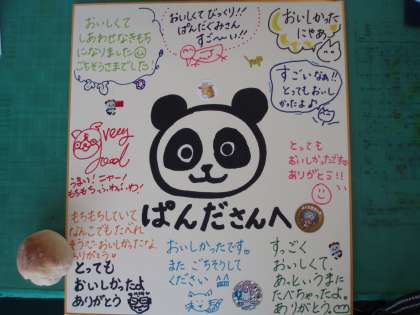 おいしくて
しあわせなきもち
になりました
ごちそうさまでした!
おいしくてびっくり!!
ぱんだぐみさん
すご〜い!!
おいしかった
にゃあ
すごいなぁ!!
とってもおいし
かったよ♪
very
good
うまい!ニャー!
もちもちっふわふわ!
とっても
おいしかったです
ありがとう!!
ぱんださんへ
もちもちしていて
なんこでもたべれ
そうだーおいしかったよ
ありがとう
とっても
おいしかったよ
ありがとう
おいしかったです。
またごちそうして
ください
すっごく
おいしくて、
あっというまに
たべちゃったよ。
ありがとう。